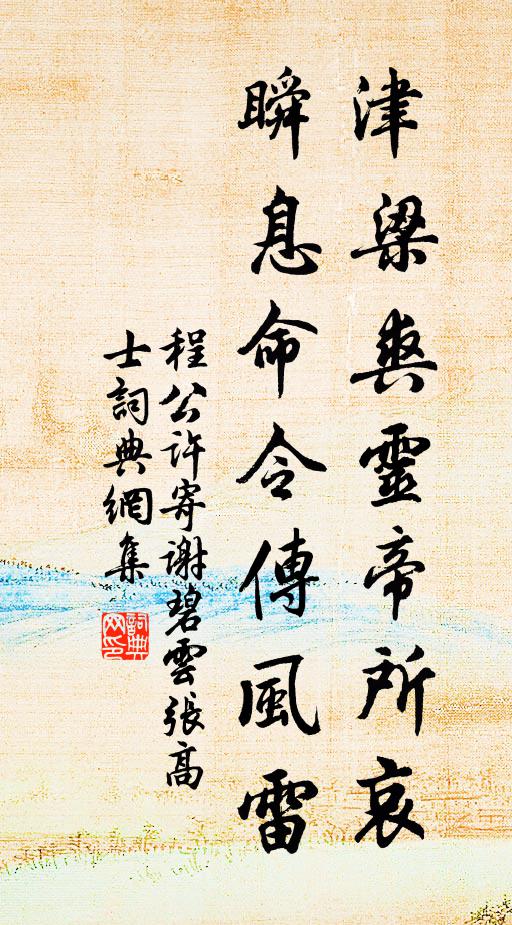 津梁爽靈帝所哀
瞬息命令傳風雷
程公許寄謝碧雲張高
士詞典網集
詞典网印